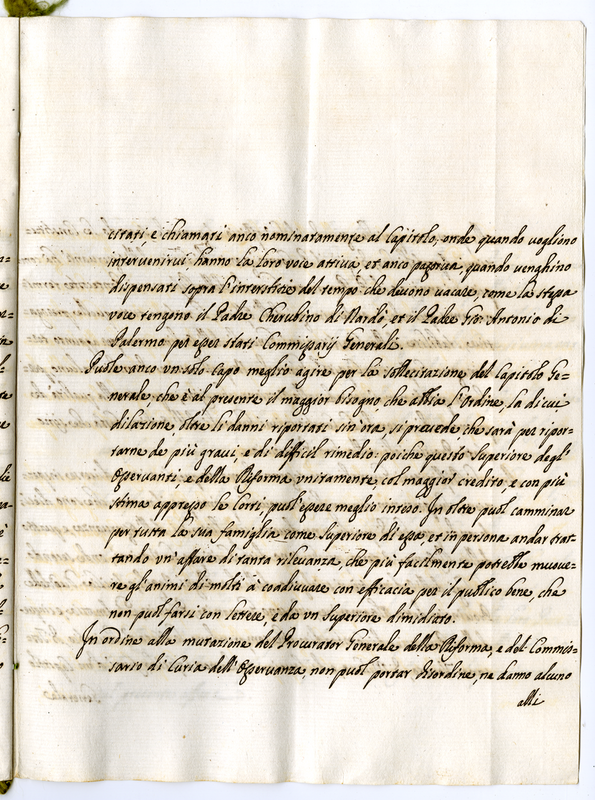 citati, e chiamati anco nominatamente al Capitolo, onde quando vogliono
intervenirvi, hanno la loro voce attiva, et anco passiva, quando venghino
dispensati sopra l'interstitie del tempo che devono vacare, come la stessa
voce tengono il Padre Cherubino di Nardò, et il Padre Gio: Antonio di
Palermo per esser stati Commissarij Generali.
Puole anco un solo Capo meglio agire per la sollecitazione del Capitolo Ge=
nerale, che è al presente il maggior bisogno, che abbia l'Ordine, la di cui
dilazione, oltre li danni riportati sin'ora, si prevede, che sarà per ripor=
tarne de più gravi, e di difficil rimedio: poiche questo Superiore degl'
Osservanti, e della Riforma unitamente col maggior credito, e con più
stima appresso le Corti, puol'essere meglio inteso. In oltre puol camminar
per tutta la sua famiglia come Superiore di essa, et in persona andar trat=
tando un'affare di tanta rilevanza, che più facilmente potrebbe muove=
re gl'animi di molti à coadiuvare con efficacia per il publico bene, che
non puol farsi con lettere, è da un Superiore dimidiato.
In ordine alla mutazione del Procurator Generale della Riforma, e del Commis=
sario di Curia dell'Osservanza, non puol portar disordine, ne danno alcuno
alli